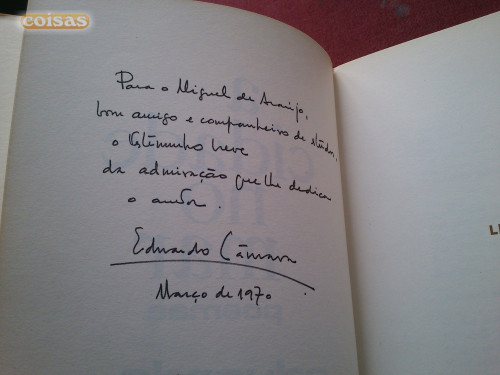 coisas
Para o Miguel de Araújo,
bom amigo e companheiro de estudos,
o testimunho breve
da admiração que lhe dedica
o autor.
Eduardo Câmara
Março de 1970
cidade
no
poemas
L